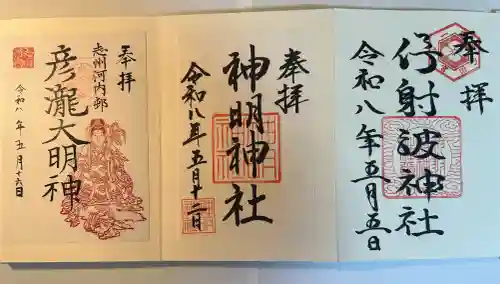 奉拝
伊射波神社
令和八年五月五日
奉拝
神明神社
令和八年五月十二日
奉拝
志州河内郷
彦瀧大明神
令和八年五月十六日